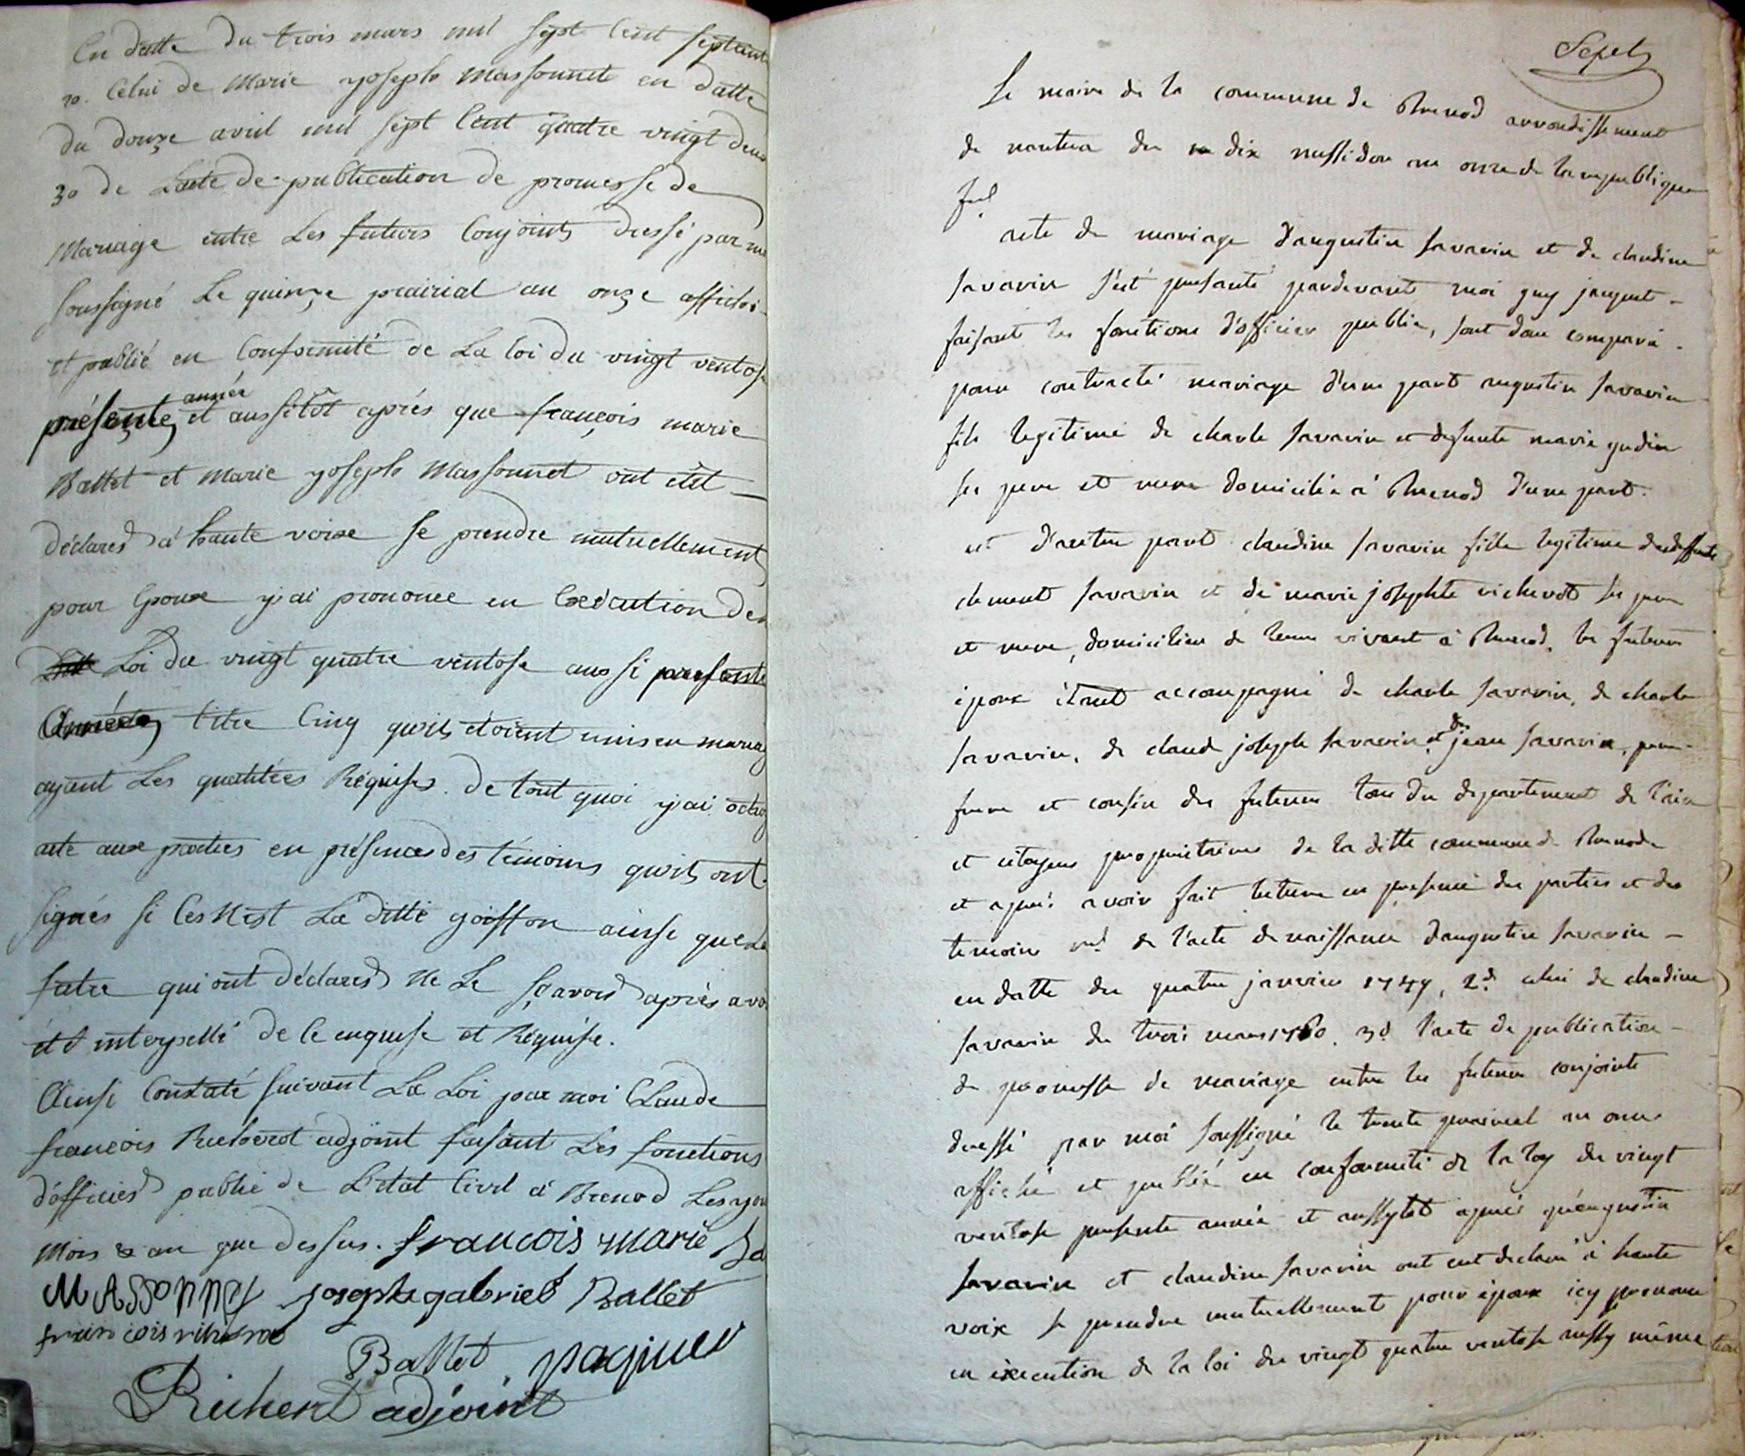 En datte du trois mars mil sept Cent septante
20. Celui de Marie yoseph Massonnet en datte
du douze avril mil sept Cent quatre vingt deux
30 de Lacte de publication de promesse de
Mariage entre Les futurs Conjoints dressé par moi
soussigné Le quinze prairial an onze affiché
et publié en Conformité de La loi du vingt ventose
présente année et aussitôt après que françois marie
Ballet et Marie yoseph Massonnet ont été
déclares à haute voixe se prendre mutuellement
pour Epoux y'ai prononce en Exécution de
Loi du vingt quatre ventose aussi presente
Année titre Cinq qu'ils étoient unis en mariag
ayant Les qualitées Réquises. de tout quoi y'ai octroy
acte aux parties en présences des témoins qu'ils ont
signés si Ces N'est La ditte goiffon ainsi que Le
futre qui ont déclares Ne Le sçavoir après avoi
été interpellé de le enquise et Réquise.
Ainsi Constaté suivant La Loi par moi Claude
françois Richerot adjoint faisant Les fonctions
d'officier publié de L'etat Civil à Brenod Les your
Mois & an que dessus. francois marie Ba
MASSONNET joseph gabriel Ballet
francois richerot
Ballet paquiet
Richerot adjoint
Sepet
Le maire de la commune de Brenod arrondissement
de nantua du dix messidor an onze de la republique
acte de mariage d'augustin savarin et de claudine
savarin s'est presanté pardevant moi guy jacquet
faisant les fonctions d'officier public, sont donc comparu
pour contracté mariage d'une part augustin savarin
fils legitime de charle savarin et defunte marie gudin
ses pere et mere domicilié à Brenod d'une part.
et d'autre part claudine savarin fille legitime de deffunt
clement savarin et de marie josephte richerot ses pere
et mere, domicilier de leurs vivant à Brenod. les futeur
époux étant accompagné de charle savarin, de charle
savarin, de claud joseph savarin, et de jean savarin, pere
frere et cousin des futeurs tous du departement de l'ain
et citoyens proprietaires de la ditte commune de Brenod
et après avoir fait lecture en presence des parties et des
temoins de l'acte de naissance d'augustin savarin
en datte du quatre janvier 1749, 2.d celui de claudine
savarin du trois mars 1760. 3.d l'acte de publication
de promesse de mariage entre les futeur conjoints
dressé par moi soussigné le trente prairial an onze
affiché et publié en conformité de la loy du vingt
ventose presente année et aussytot après qu'augustin
savarin et claudine savarin ont eut declaré à haute
voix se prendre mutuellement pour époux icy prononce
en execution de la loi du vingt quatre ventose aussy même